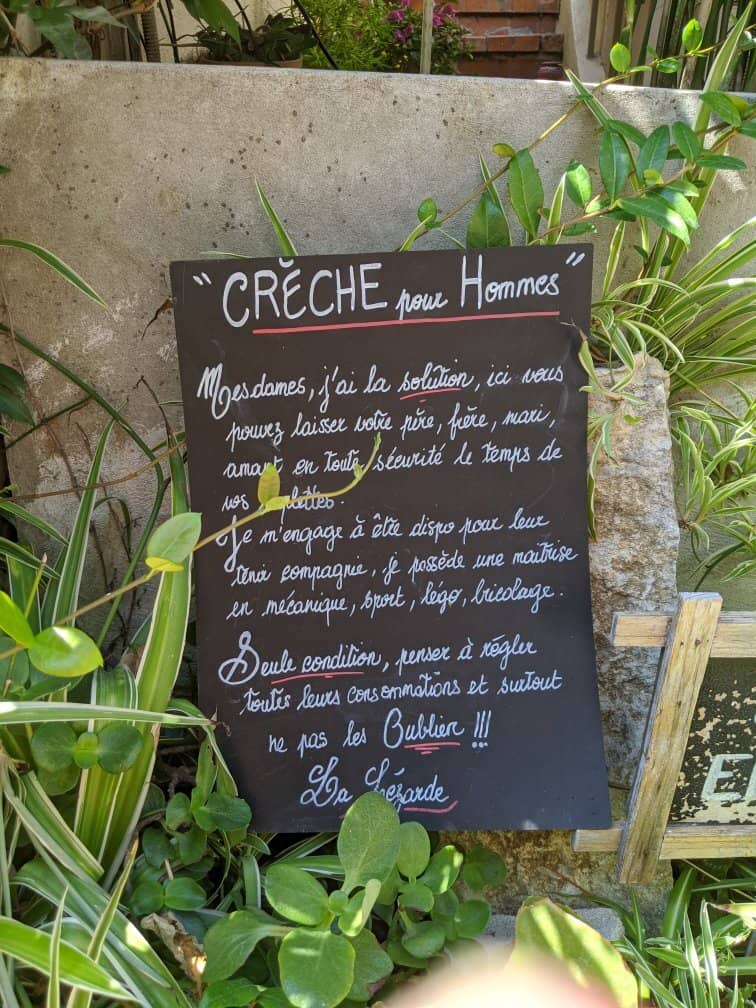 "CRĔCHE pour Hommes"
Mesdames, j'ai la solution, ici vous
pouvez laisser votre père, frère, mari,
amant en toute sécurité le temps de
vos
Je m'engage à être dispo pour leur
tenir compagnie, je possède une maitrise
en mécanique, sport, légo, bricolage.
Seule condition, penser à régler
toutes leurs consommations et surtout
ne pas les Oublier !!!
La Lézarde
E